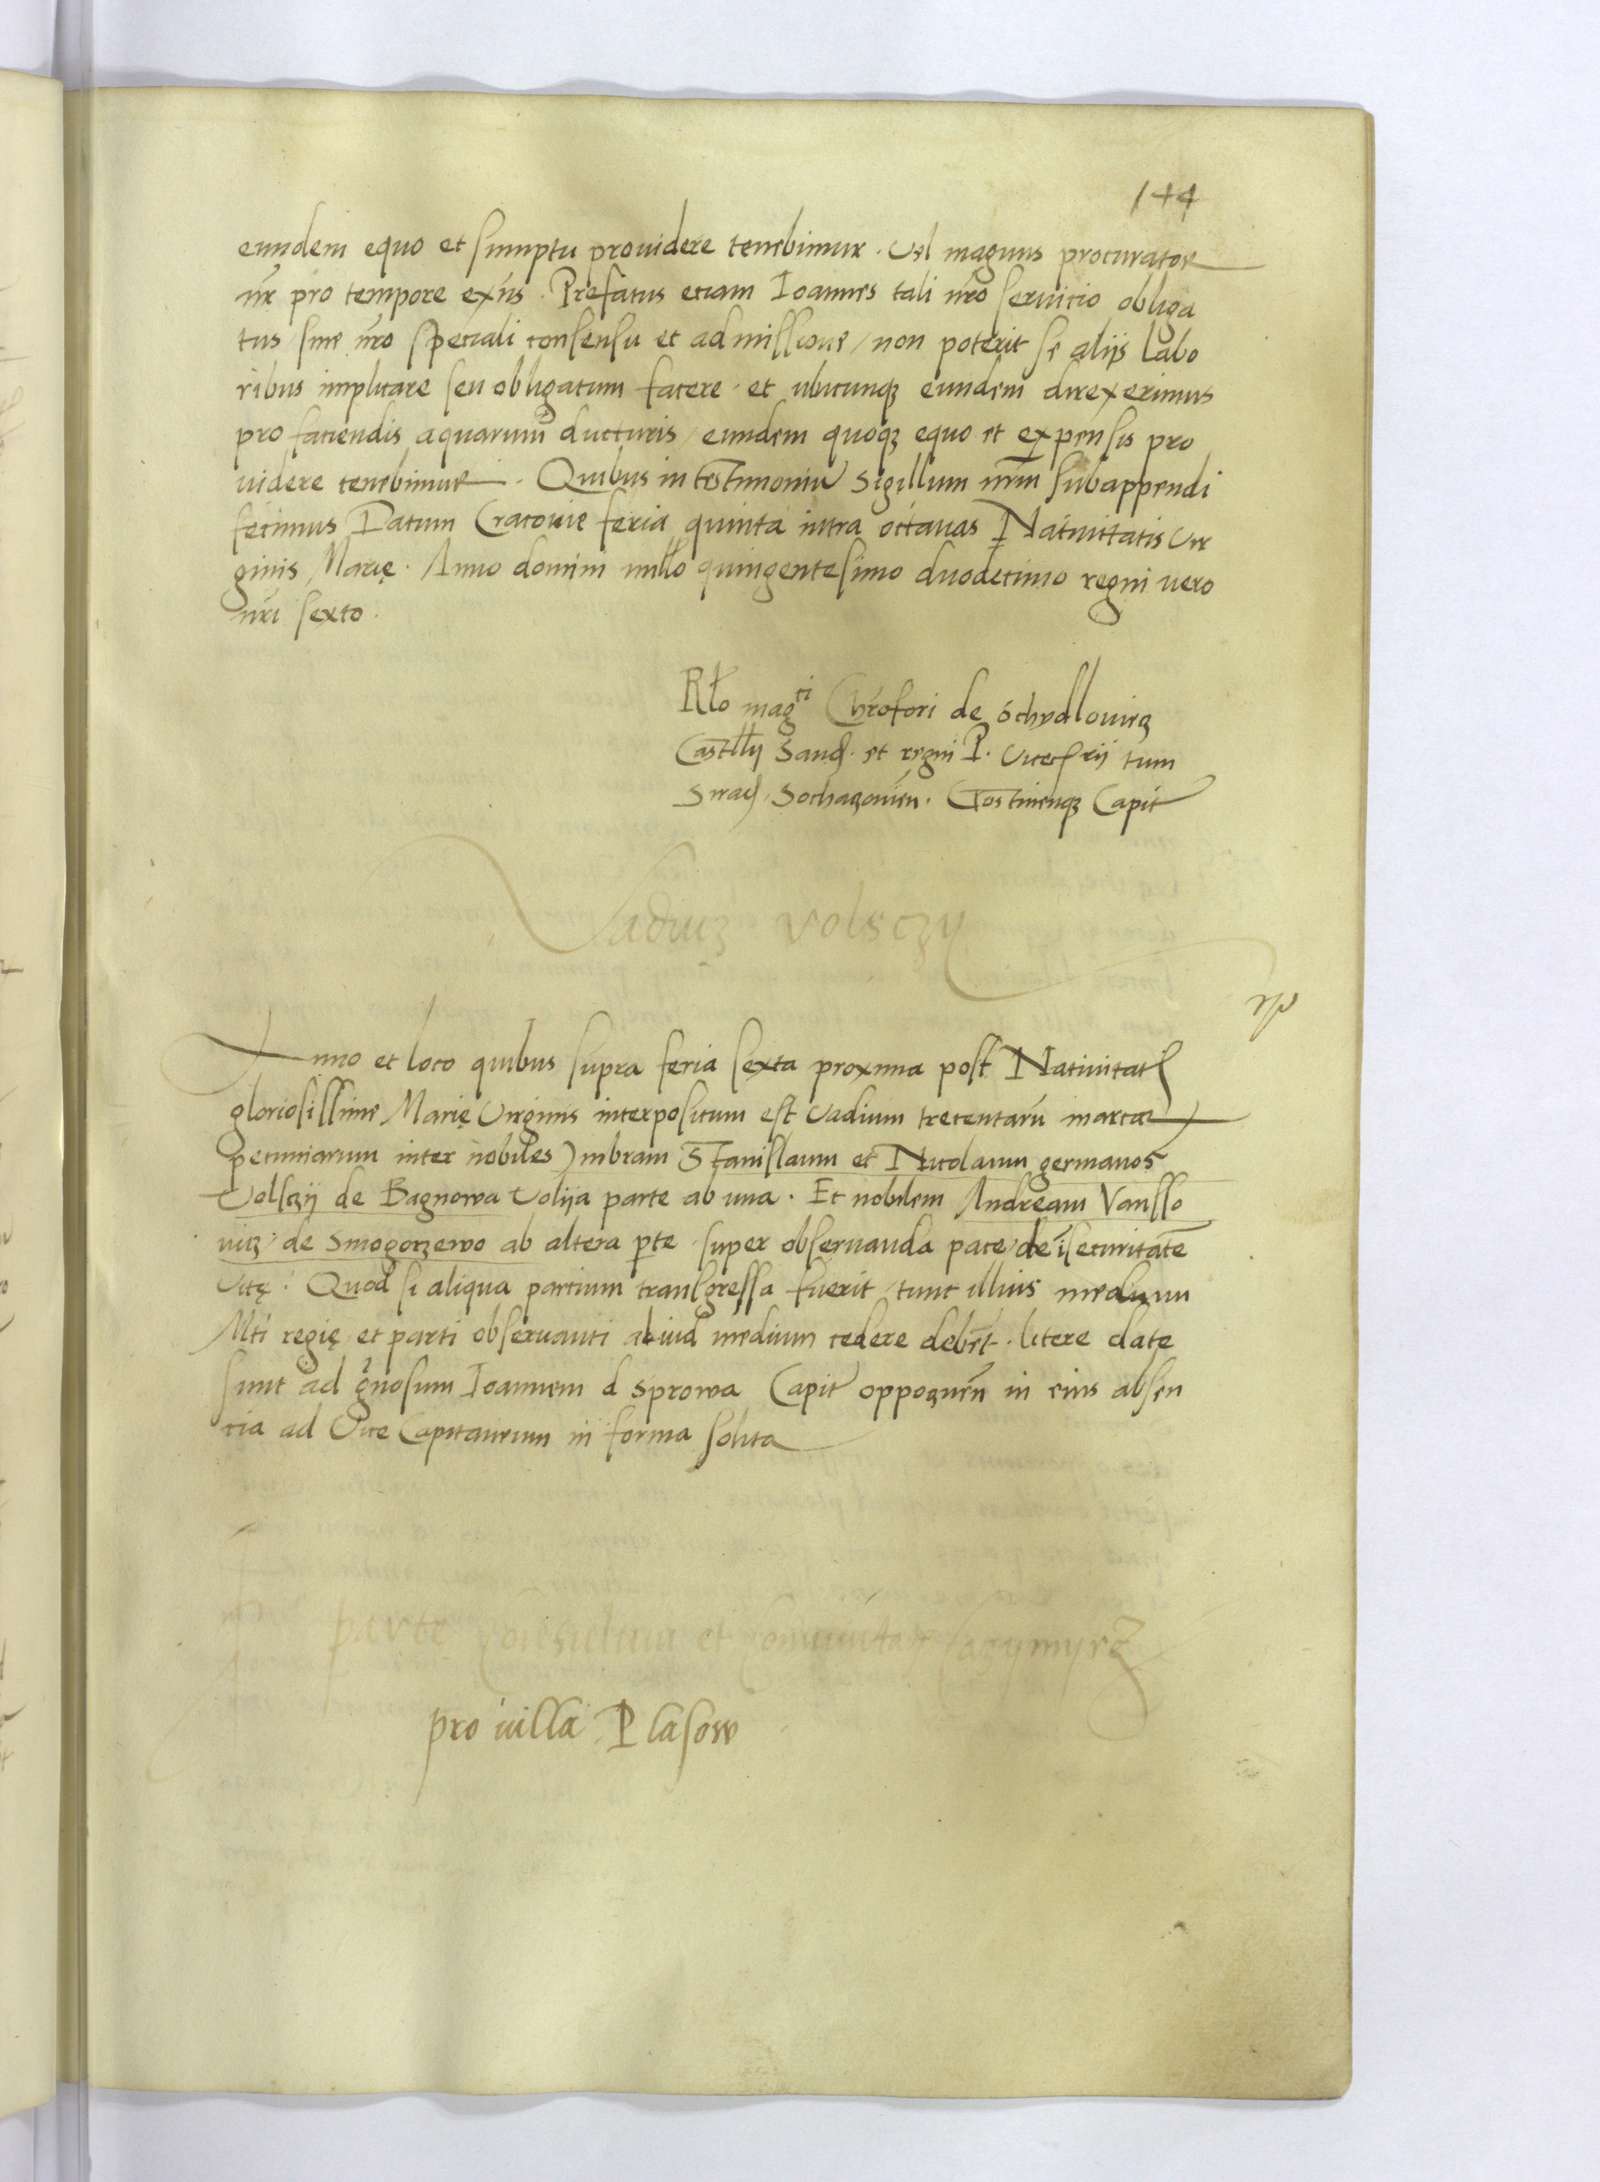 144
eundem equo et sumptu prouidere tenebimur. Vel magnus procurator
nr̄ pro tempore exñs. Prefatus eciam Ioannes tali nr̄o seruicio obliga
tus sine nr̄o speciali consensu et admissione / non poterit se alijs labo
ribus implicare seu obligatum facere. et ubicunqꝫ eundem direxerimus
pro faciendis aquarum ducturis / eundem quoqꝫ equo et expensis pro
uidere tenebimur. Quibus in testimoniū sigillum nr̄m subappendi
fecimus Datum Cracouie feria quinta intra octauas Natiuitatis Vir
ginis Marię. Anno domini millō quingentesimo duodecimo regni vero
nr̄i sexto.
Rło mag^ci Chr̄ofori de Schydlouiecz
Castłłij Sand. et regni P. Vicecꝭrij tum
Sirad, Sochaczouieñ. Gostinenqꝫ Capit
Vadiuꝫ Volsczij
Anno et loco quibus supra feria sexta proxima post Natiuitatꝭ
gloriosissime Marię Virginis interpositum est Vadium trecentarū marcaꝝ
pecuniarum inter nobiles Imbram Stanislaum et Nicolaum germanos
Volsczij de Bagnowa Volija parte ab una. Et nobilem Andream Vansso
uicz de Smogorzewo ab altera pꝑte super obseruanda pace de īsecuritate
Vitę. Quod si aliqua partium transgressa fuerit / tunc illius medium
Mti regię et parti obseruanti aliud medium cedere debet. litere date
sunt ad gn̄osum Ioannem d Sprowa Capit oppoczneñ in eius absen
cia ad Vice Capitaneum in forma solita
parte Consulum et Comunitatꝭ Cazymyrꝫ
pro uilla Plasow